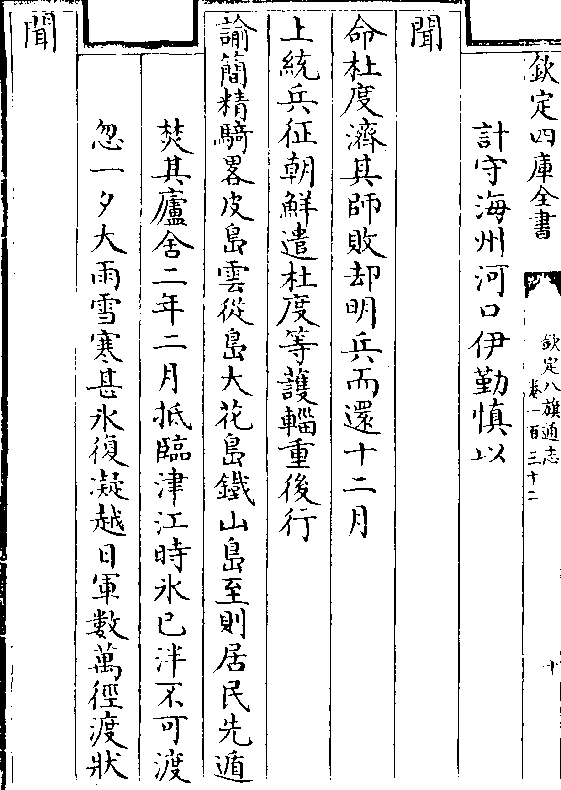 欽定四庫全書
欽定八旗通志
卷一百三十二
十
計守海州河口伊勤慎以
聞
命杜度濟其師敗却明兵而還十二月
上統兵征朝鮮遣杜度等護輜重後行
諭簡精騎畧皮島雲從島大花島鐵山島至則居民先遁
焚其廬舍二年二月抵臨津江時氷已泮不可渡
忽一夕大雨雪寒甚氷復凝越日軍數萬徑渡狀
聞